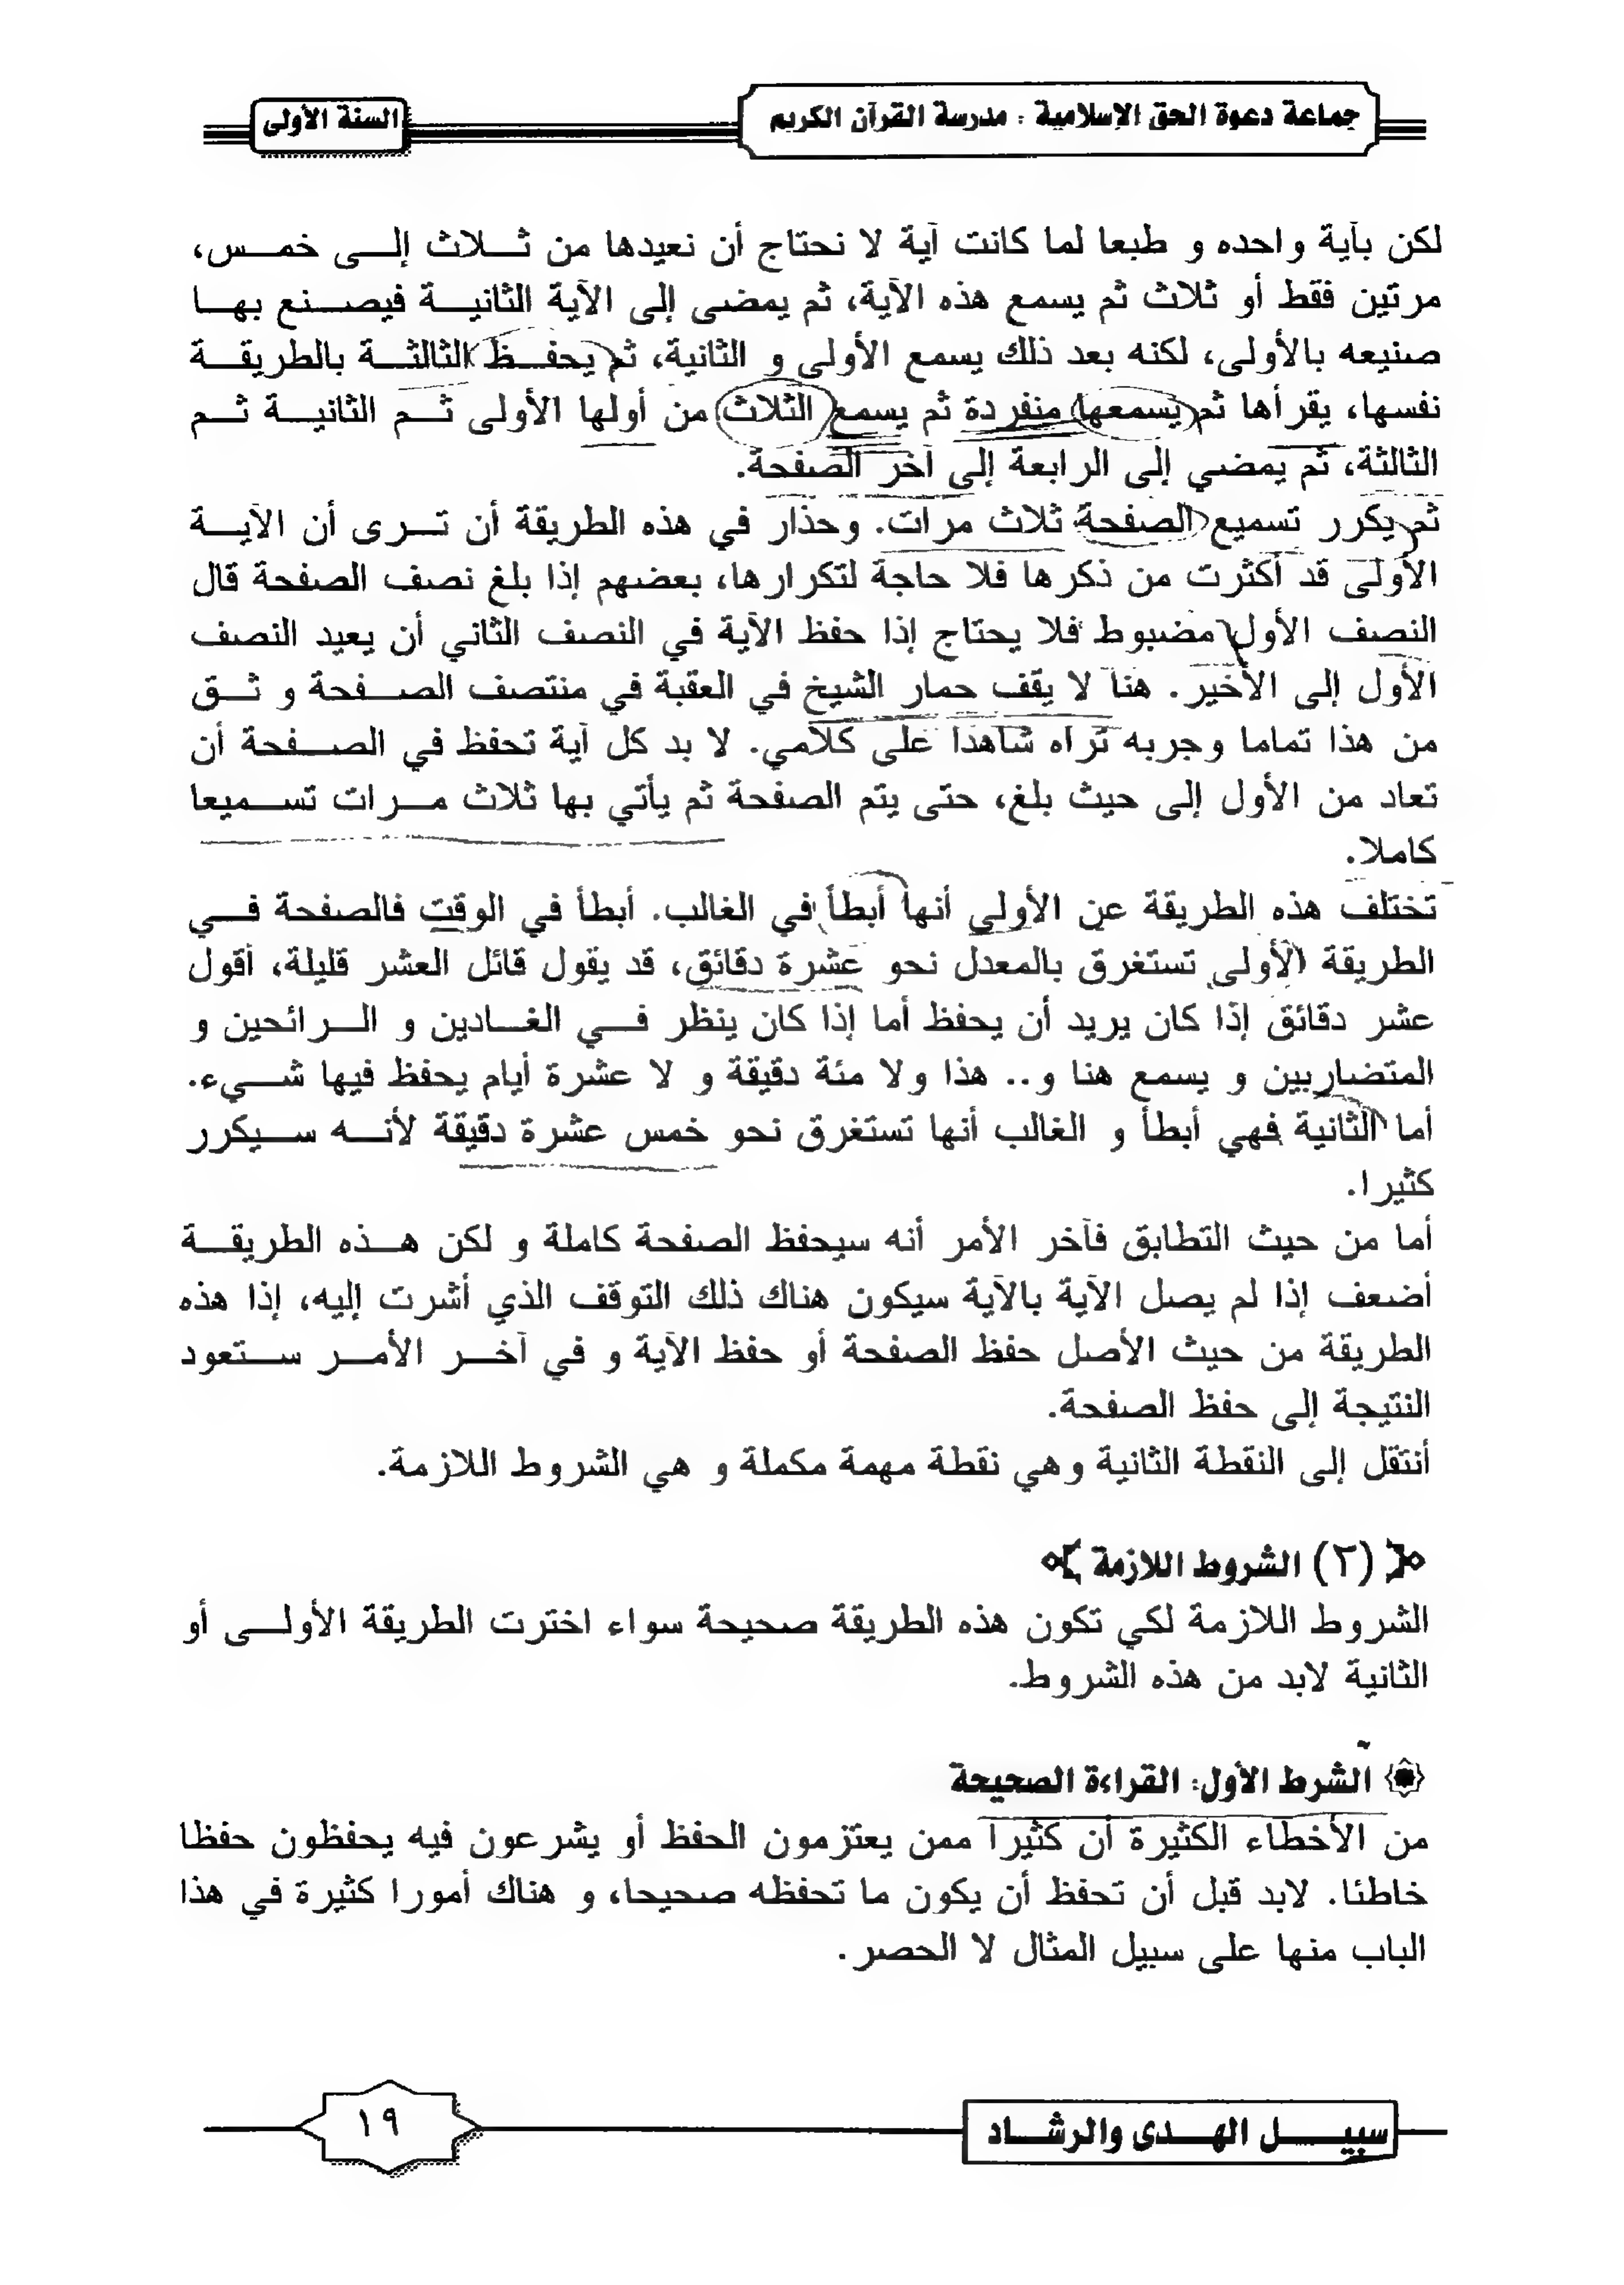 جماعة دعوة الحق الإسلامية : مدرسة القرآن الكريم
السنة الأولى
لكن بآية واحده و طبعا لما كانت آية لا نحتاج أن نعيدها من ثلاث إلى خمس،
مرتين فقط أو ثلاث ثم يسمع هذه الآية، ثم يمضى إلى الآية الثانية فيصنع بها
صنيعه بالأولى، لكنه بعد ذلك يسمع الأولى و الثانية، ثم يحفظ الثالثة بالطريقة
نفسها، يقرأها ثم يسمعها منفردة ثم يسمع الثلاث من أولها الأولى ثم الثانية ثم
الثالثة، ثم يمضي إلى الرابعة إلى آخر الصفحة.
ثم يكرر تسميع الصفحة ثلاث مرات. وحذار في هذه الطريقة أن ترى أن الآية
الأولى قد أكثرت من ذكرها فلا حاجة لتكرارها، بعضهم إذا بلغ نصف الصفحة قال
النصف الأول مضبوط فلا يحتاج إذا حفظ الآية في النصف الثاني أن يعيد النصف
الأول إلى الأخير. هنا لا يقف حمار الشيخ في العقبة في منتصف الصفحة و ثق
من هذا تماما وجربه تراه شاهدا على كلامي. لا بد كل آية تحفظ في الصفحة أن
تعاد من الأول إلى حيث بلغ، حتى يتم الصفحة ثم يأتي بها ثلاث مرات تسميعا
كاملا.
تختلف هذه الطريقة عن الأولي أنها أبطأ في الغالب. أبطأ في الوقت فالصفحة في
الطريقة الأولى تستغرق بالمعدل نحو عشرة دقائق، قد يقول قائل العشر قليلة، أقول
عشر دقائق إذا كان يريد أن يحفظ أما إذا كان ينظر في الغادين و الرائحين و
المتضاربين و يسمع هنا و.. هذا ولا مئة دقيقة و لا عشرة أيام يحفظ فيها شيء.
أما الثانية فهي أبطأ و الغالب أنها تستغرق نحو خمس عشرة دقيقة لأنه سيكرر
كثيرا.
أما من حيث التطابق فآخر الأمر أنه سيحفظ الصفحة كاملة و لكن هذه الطريقة
أضعف إذا لم يصل الآية بالآية سيكون هناك ذلك التوقف الذي أشرت إليه، إذا هذه
الطريقة من حيث الأصل حفظ الصفحة أو حفظ الآية و في آخر الأمر ستعود
النتيجة إلى حفظ الصفحة.
أنتقل إلى النقطة الثانية وهي نقطة مهمة مكملة و هي الشروط اللازمة.
(٢) الشروط اللازمة
الشروط اللازمة لكي تكون هذه الطريقة صحيحة سواء اخترت الطريقة الأولى أو
الثانية لابد من هذه الشروط.
الشرط الأول: القراءة الصحيحة
من الأخطاء الكثيرة أن كثيرا ممن يعتزمون الحفظ أو يشرعون فيه يحفظون حفظا
خاطئا. لابد قبل أن تحفظ أن يكون ما تحفظه صحيحا، و هناك أمورا كثيرة في هذا
الباب منها على سبيل المثال لا الحصر.
سبيل الهدى والرشاد
١٩